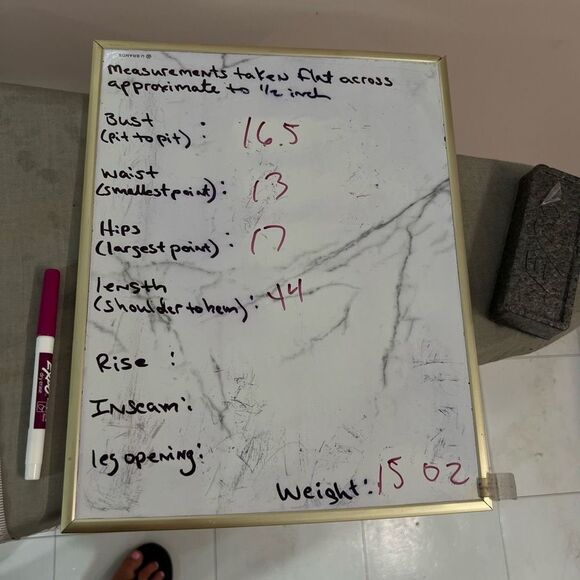 U BRANDS
measurements taken flat across
approximate to 1/2 inch
Bust
(pit to pit) : 16.5
waist
(smallest point) : 13
Hips
(largest point) : 17
length
(shoulder to hem) : 44
Rise :
Inseam :
leg opening :
Weight : 15 oz
EXPO